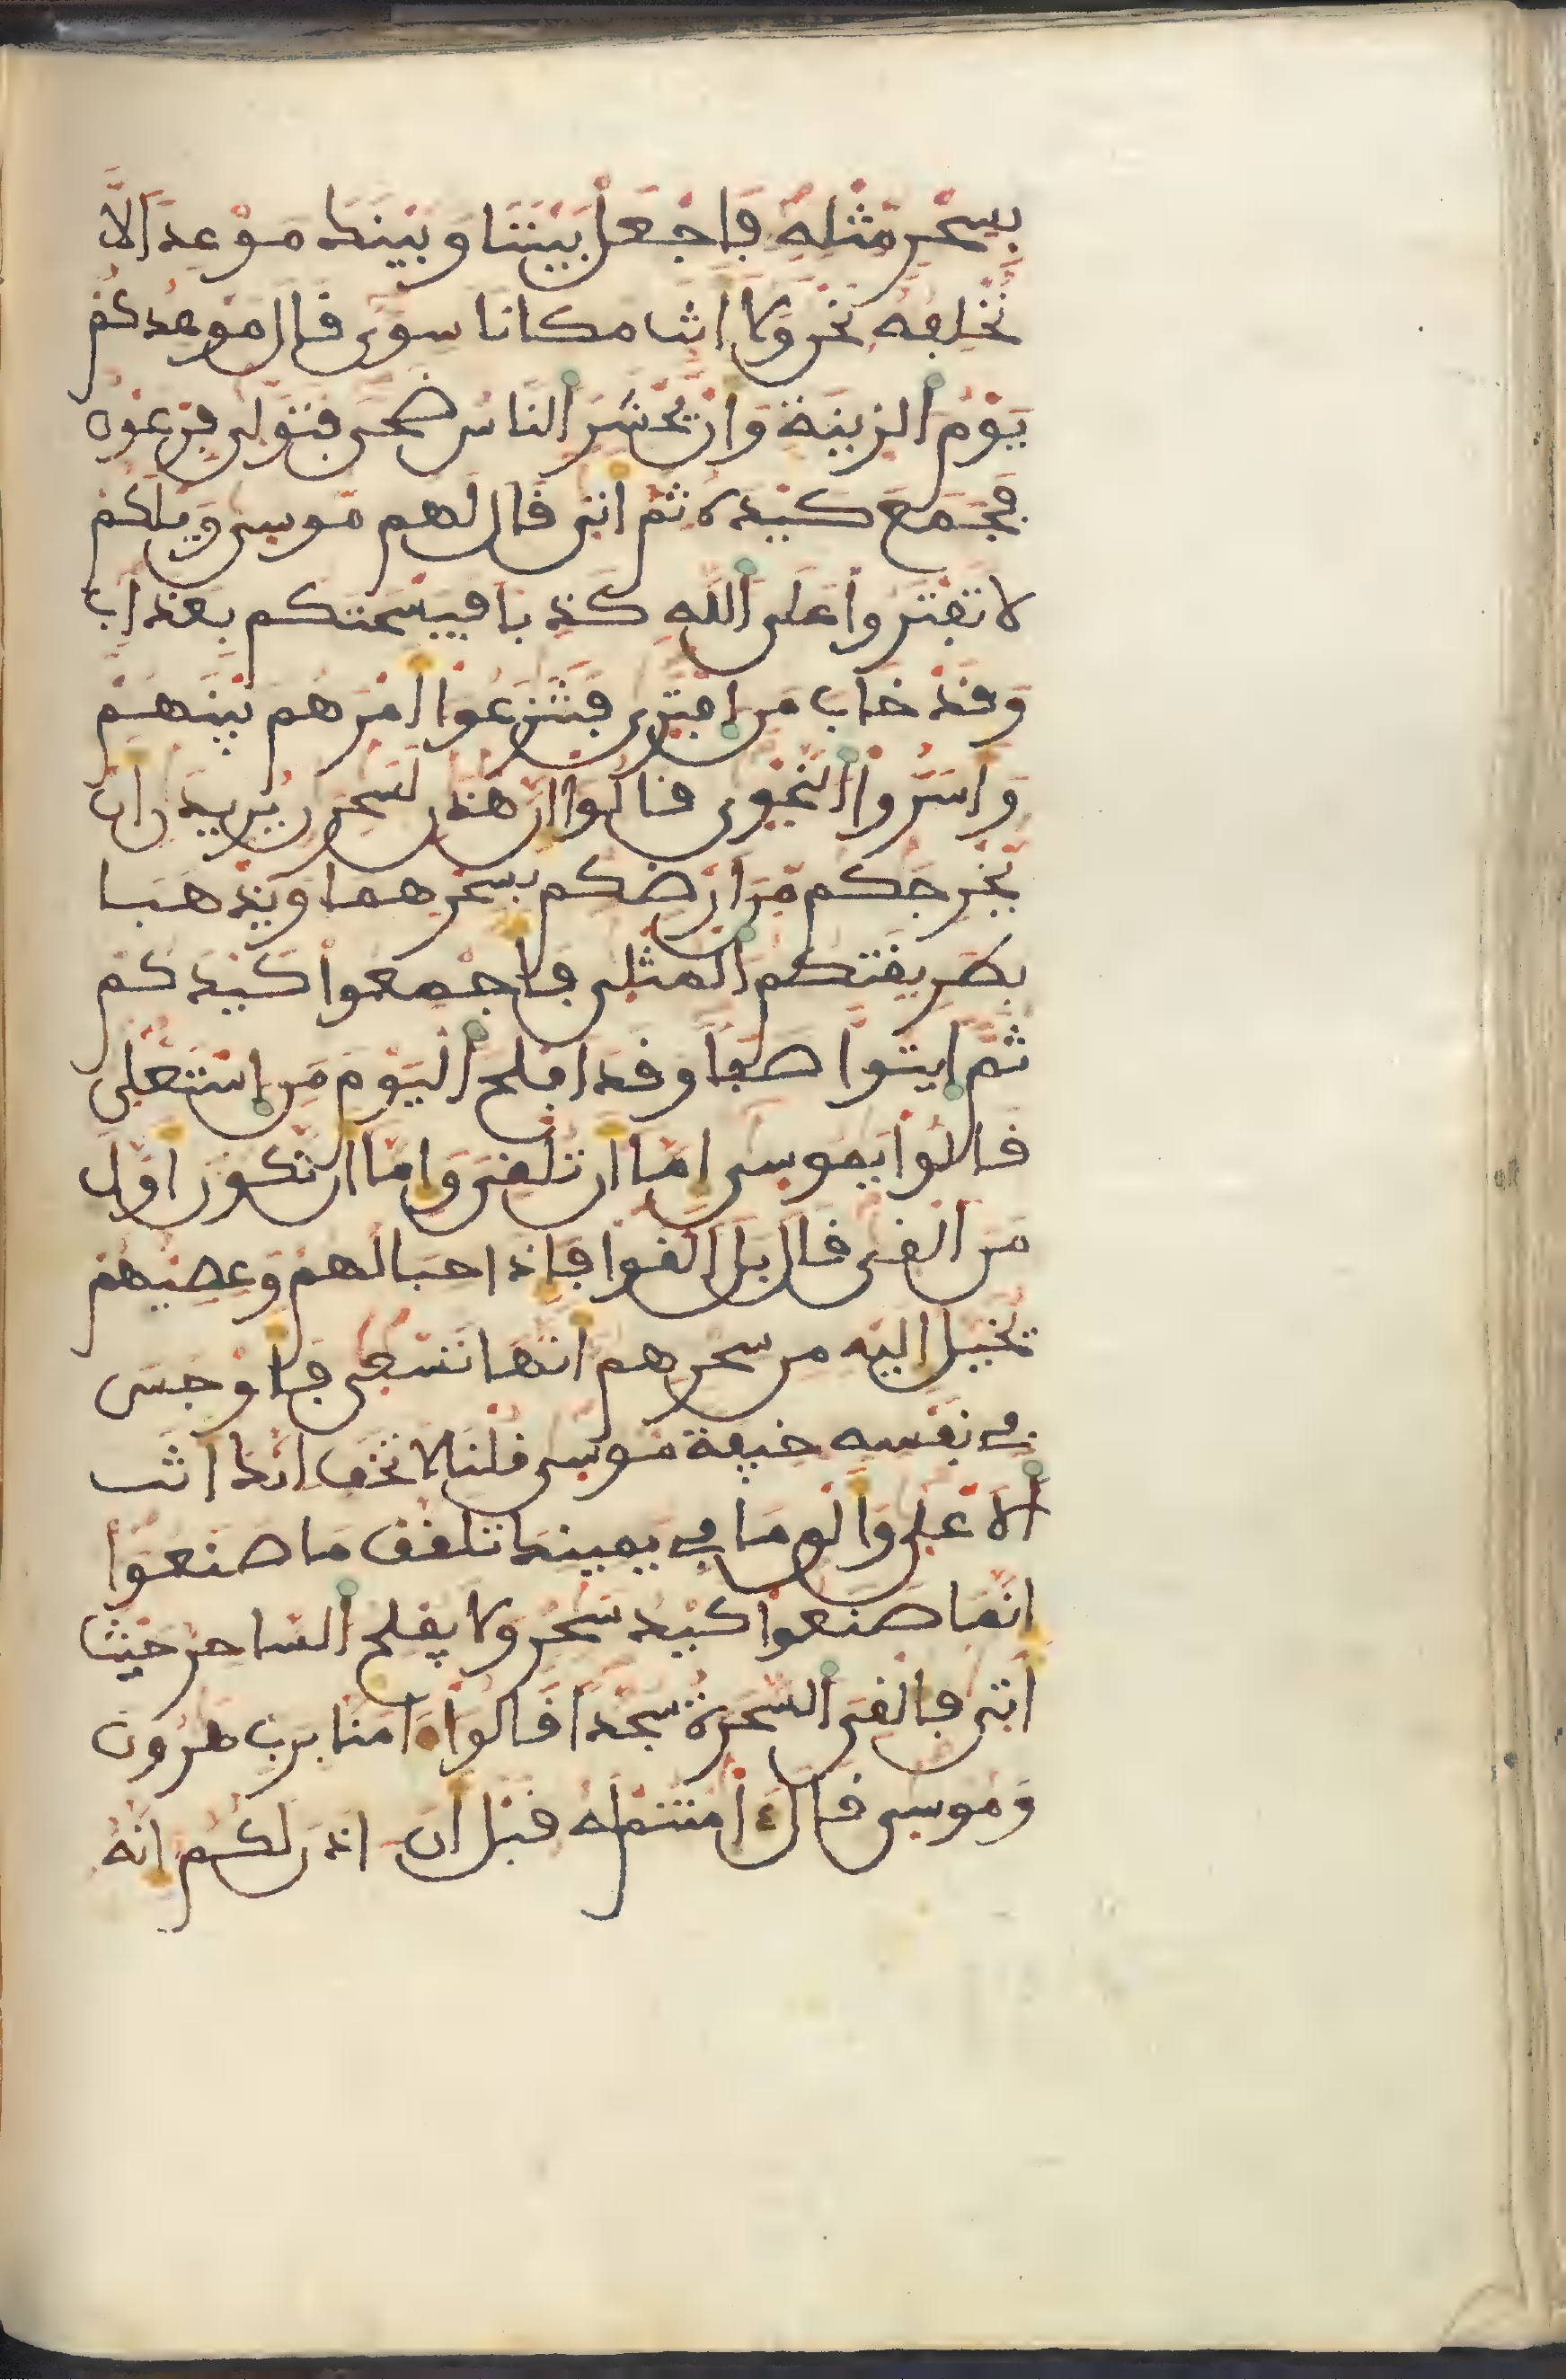 بِسِحْرٍ مِّثْلِهِ فَاجْعَلْ بَيْنَنَا وَبَيْنَكَ مَوْعِدًا لَّا
نُخْلِفُهُ نَحْنُ وَلَا أَنتَ مَكَانًا سِوًى قَالَ مَوْعِدُكُمْ
يَوْمُ الزِّينَةِ وَأَن يُحْشَرَ النَّاسُ ضُحًى فَتَوَلَّى فِرْعَوْنُ
فَجَمَعَ كَيْدَهُ ثُمَّ أَتَى قَالَ لَهُم مُّوسَى وَيْلَكُمْ
لَا تَفْتَرُوا عَلَى اللَّهِ كَذِبًا فَيَسْحَتَكُم بِعَذَابٍ
وَقَدْ خَابَ مَنِ افْتَرَى فَتَنَزَعُوا أَمْرَهُم بَيْنَهُمْ
وَأَسَرُّوا النَّجْوَى قَالُوا إِنَّ هَذَنِ لَسَحِرَنِ يُرِيدَانِ أَنْ
يُخْرِجَكُم مِّنْ أَرْضِكُم بِسِحْرِهِمَا وَيَذْهَبَا
بِطَرِيقَتِكُمُ الْمُثْلَى فَأَجْمِعُوا كَيْدَكُمْ
ثُمَّ ايتُوا صَفًّا وَقَدْ أَفْلَحَ الْيَوْمَ مَنِ اسْتَعْلَى
قَالُوا يَمُوسَى إِمَّا أَن تُلْقِيَ وَإِمَّا أَن نَّكُونَ أَوَّلَ
مَنْ أَلْقَى قَالَ بَلْ أَلْقُوا فَإِذَا حِبَالُهُمْ وَعِصِيُّهُمْ
يُخَيَّلُ إِلَيْهِ مِن سِحْرِهِمْ أَنَّهَا تَسْعَى فَأَوْجَسَ
فِي نَفْسِهِ خِيفَةً مُّوسَى قُلْنَا لَا تَخَفْ إِنَّكَ أَنتَ
الْأَعْلَى وَأَلْقِ مَا فِي يَمِينِكَ تَلَقَّفْ مَا صَنَعُوا
إِنَّمَا صَنَعُوا كَيْدُ سَحِرٍ وَلَا يُفْلِحُ السَّاحِرُ حَيْثُ
أَتَى فَأُلْقِيَ السَّحَرَةُ سُجَّدًا قَالُوا ءَامَنَّا بِرَبِّ هَرُونَ
وَمُوسَى قَالَ ءَامَنتُمْ لَهُ قَبْلَ أَنْ اذَنَ لَكُمْ إِنَّهُ